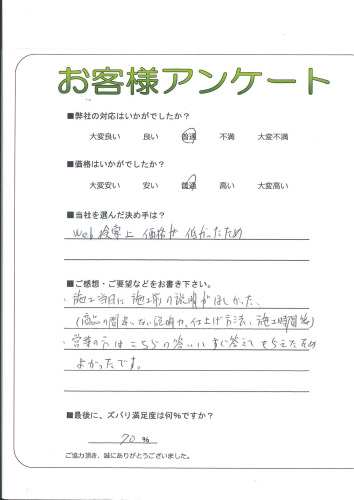 お客様アンケート
■弊社の対応はいかがでしたか？
大変良い 良い 普通 不満 大変不満
■価格はいかがでしたか？
大変安い 安い 普通 高い 大変高い
■当社を選んだ決め手は？
Web検索上 価格が 低かったため
■ご感想・ご要望などをお書き下さい。
・施工当日に施工前の説明がほしかった。
(商品の間違いない説明や、仕上げ方法、施工時間等)
・営業の方はこちらの答いにすぐ答えてもらえたため
よかったです。
■最後に、ズバリ満足度は何%ですか？
70 %
ご協力頂き、誠にありがとうございました。